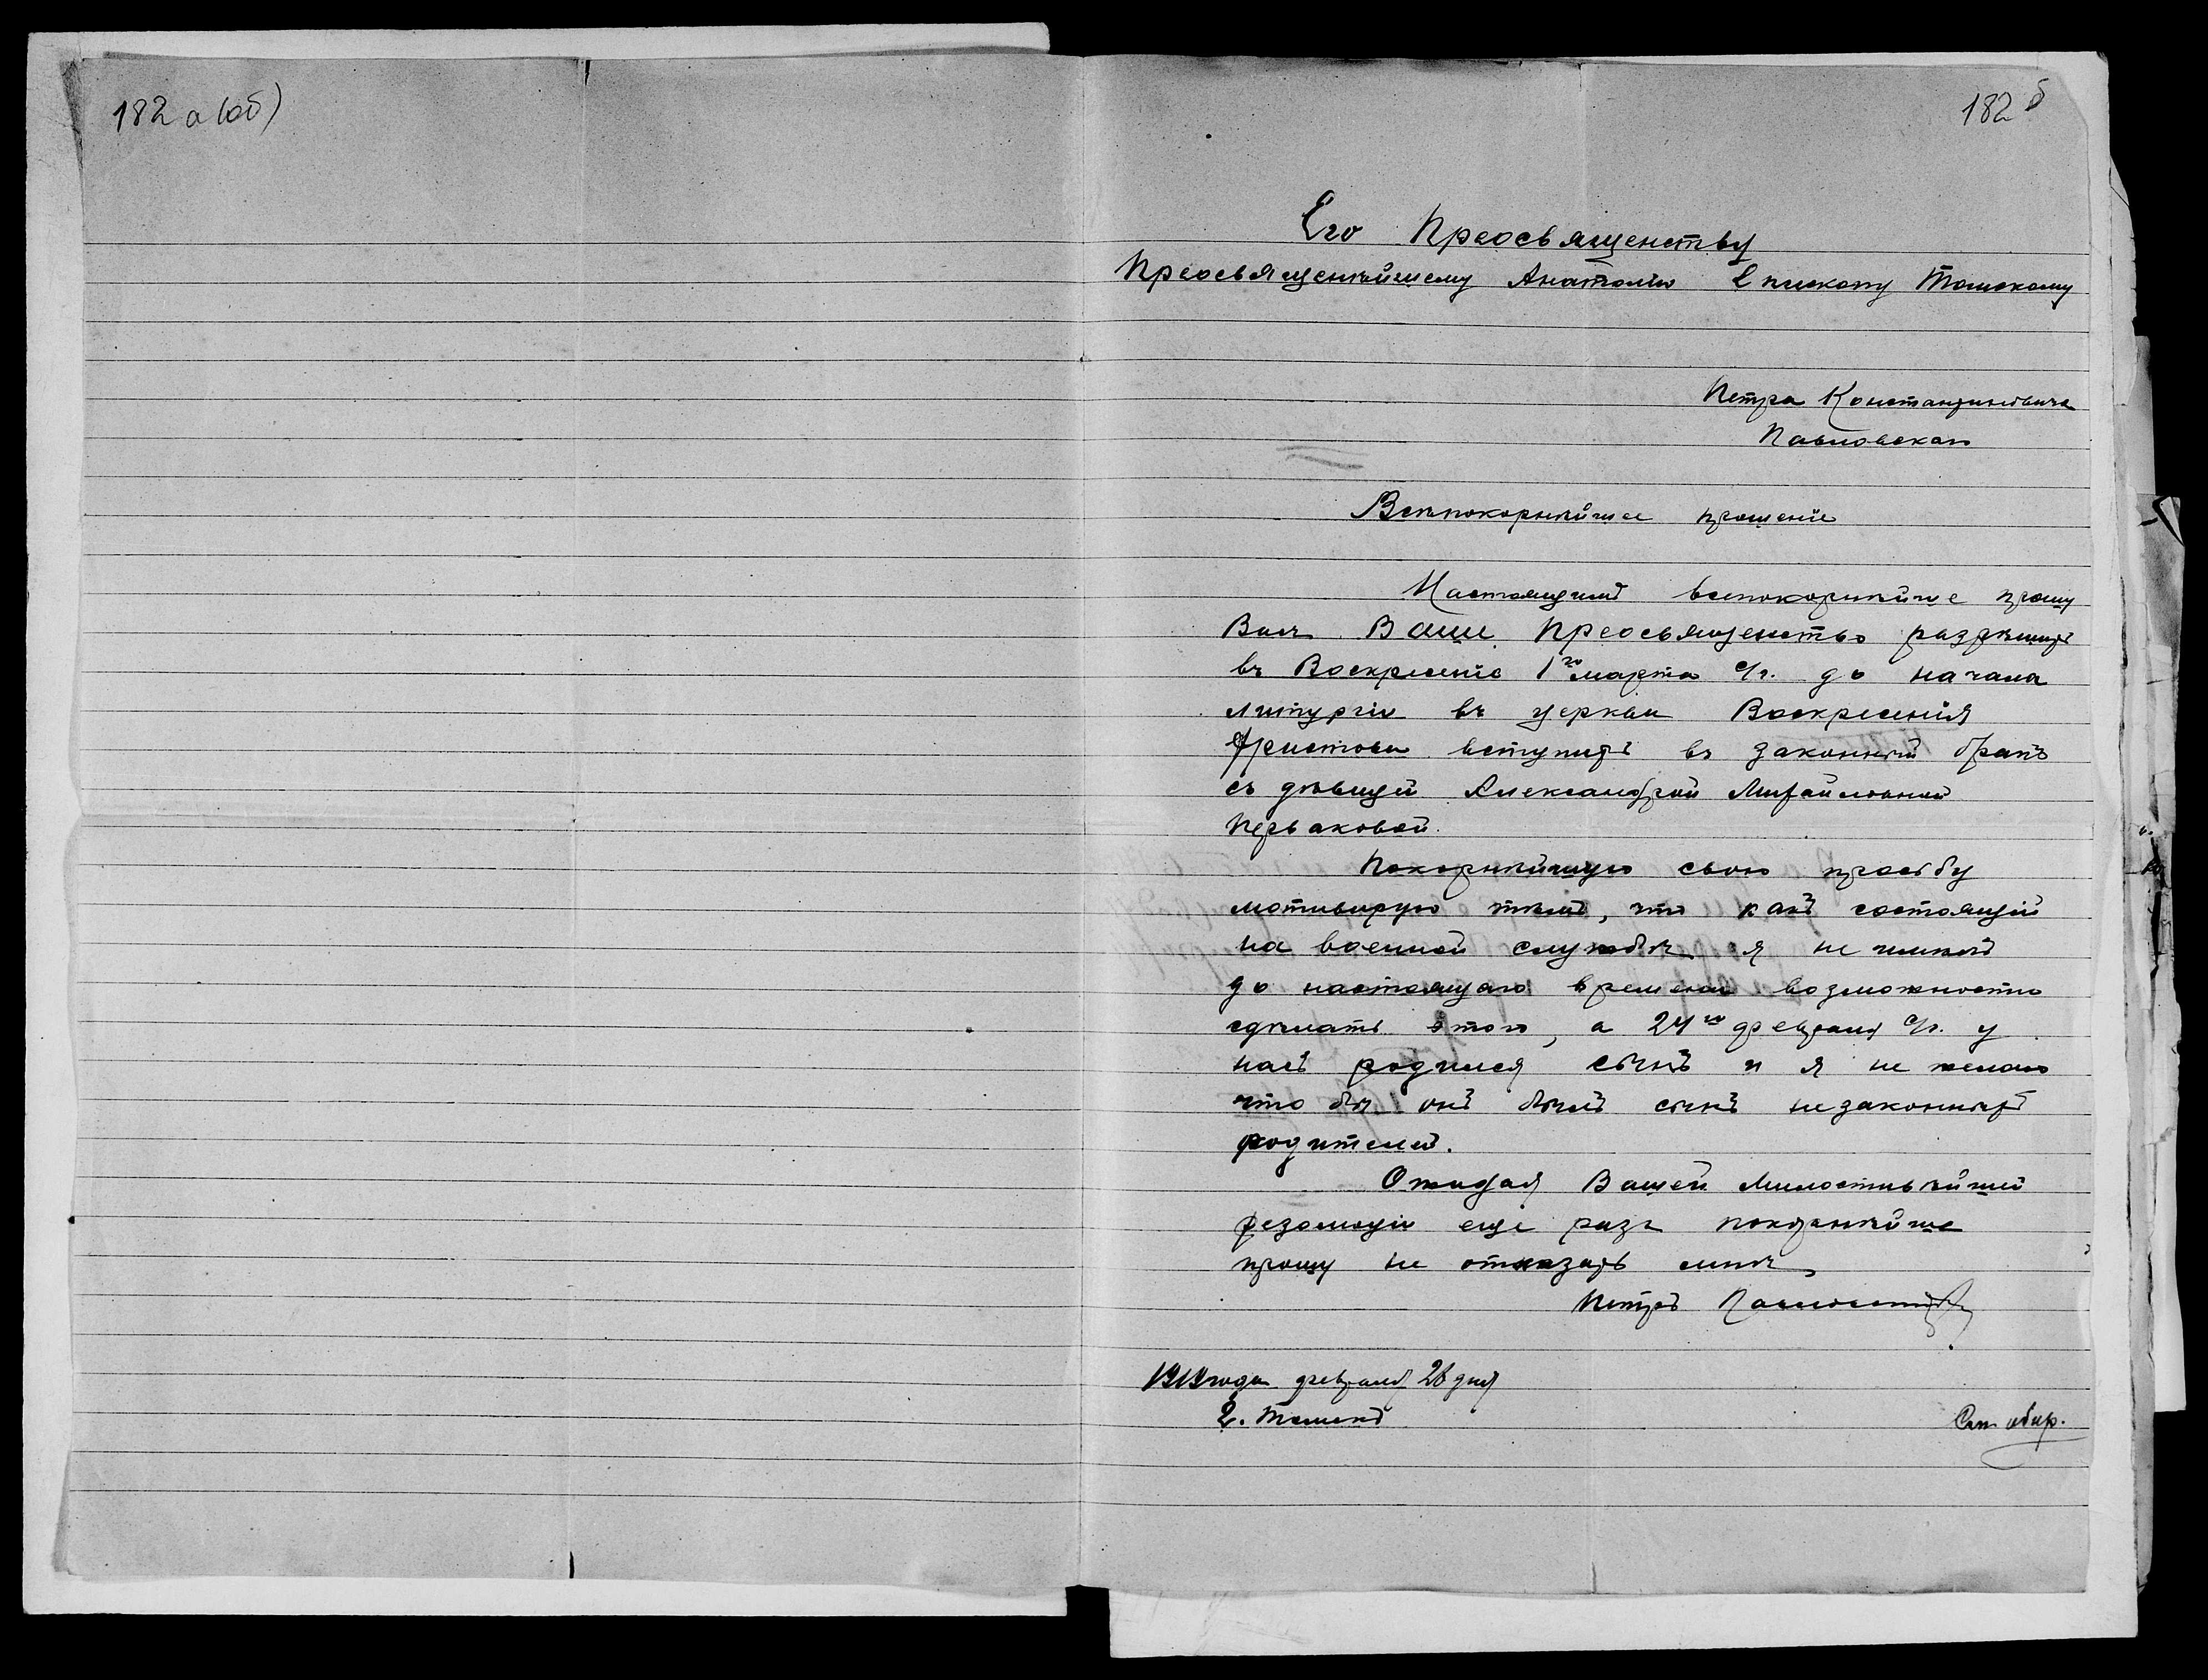 182 а (об)
182 б
Его Преосвященству
Преосвященнѣйшему Анатолію Епископу Томскому
Петра Константиновича
Павловскаго
Всепокорнѣйшее прошеніе
Настоящимъ всепокорнѣйше прошу
Васъ Ваше Преосвященство разрѣшить
въ Воскресеніе 1го марта с/г. до начала
литургіи въ церкви Воскресенія
Христова вступить въ законный бракъ
съ дѣвицей Александрой Михайловной
Перваковой.
Покорнѣйшую свою просьбу
мотивирую тѣмъ, что какъ состоящій
на военной службѣ я не имѣлъ
до настоящаго времени возможности
сдѣлать этого, а 24го февраля с/г. у
насъ родился сынъ и я не желаю
что бы онъ былъ сынъ незаконныхъ
родителей.
Ожидая Вашей Милостивѣйшей
резолюціи еще разъ покорнѣйше
прошу не отказать мнѣ,
Петръ Павловскій
года февраля 26 дня
г. Томскъ